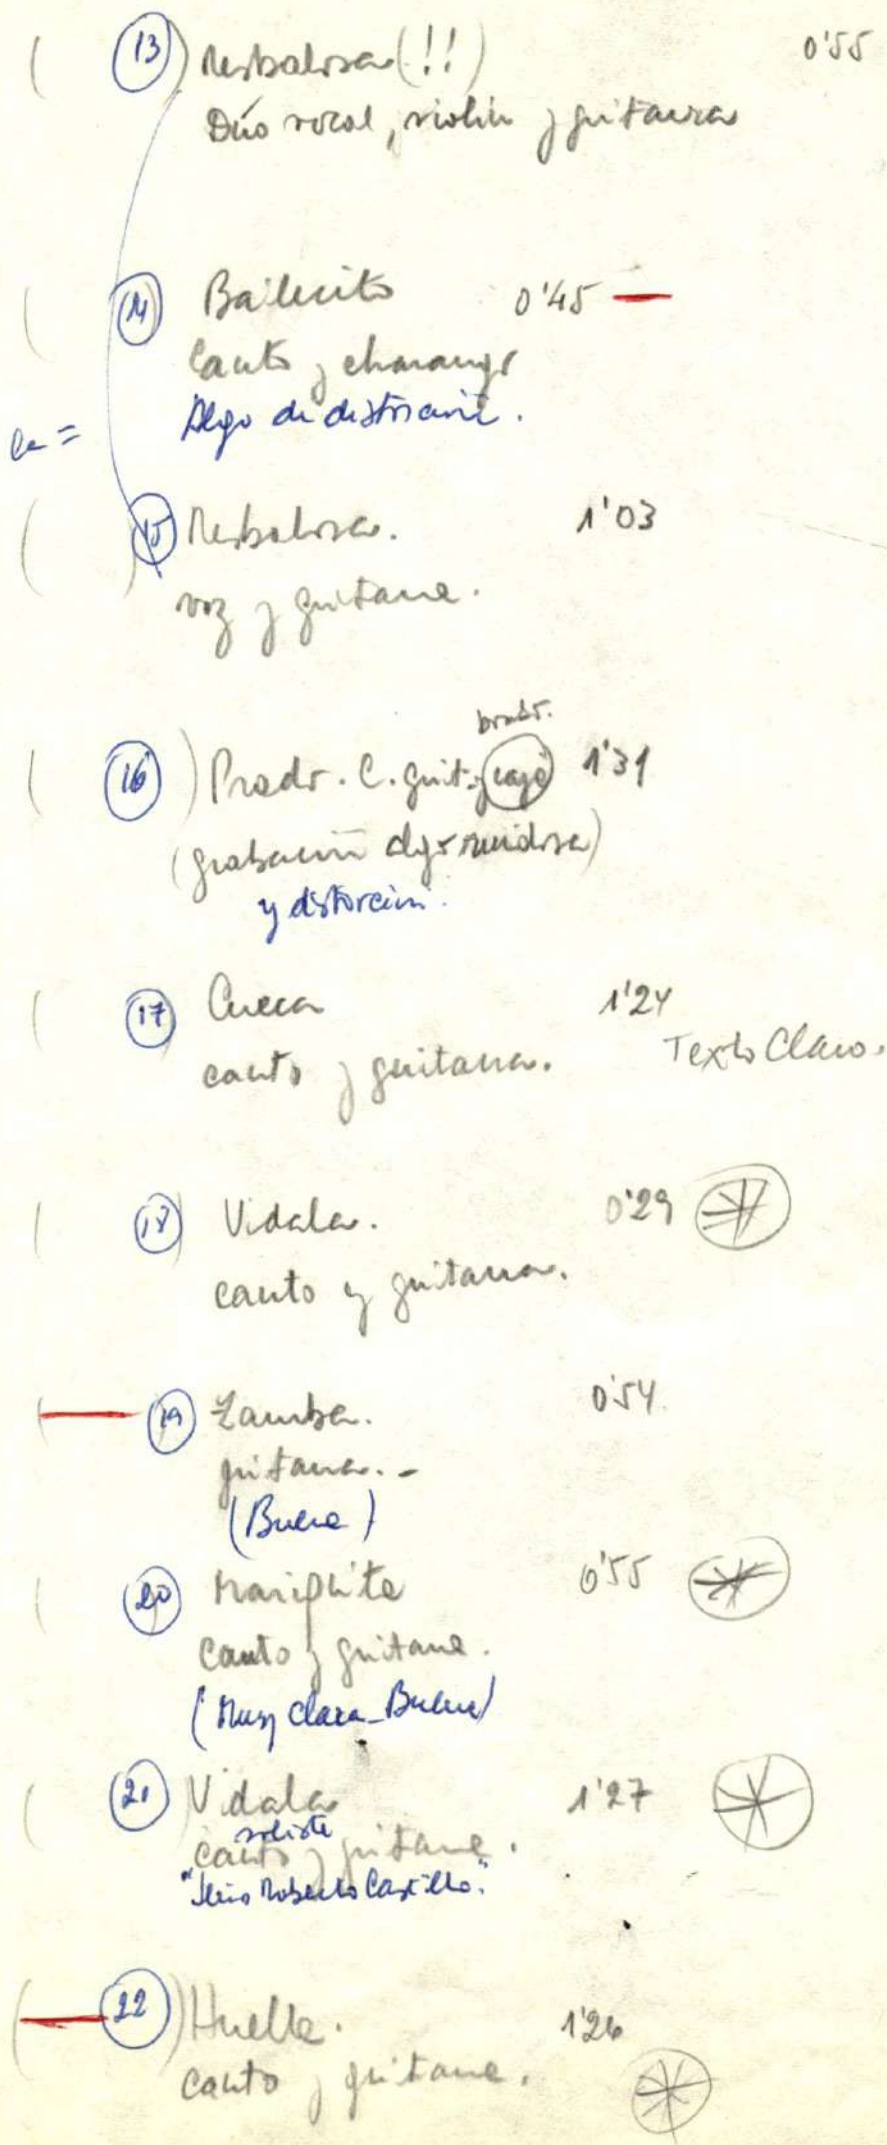 ( 13 ) Resbalosa (!!) 0'55
Dúo vocal, violín y guitarra
( 14 ) Bailecito 0'45 —
Canto y charango
Algo de distorsión.
la =
( 15 ) Resbalosa. 1'03
voz y guitarra.
bombo.
( 16 ) Prado. C. guit. y caja 1'31
(grabación algo ruidosa)
y distorción.
( 17 Cueca 1'24
canto y guitarra. Texto Claro.
( 18 ) Vidala. 0'29
canto y guitarra.
( 19 Zamba. 0'54
guitarra. -
(Buena)
( 20 Mariquita 0'55
canto y guitarra.
(Muy clara - Buena)
( 21 ) Vidala 1'27
solista
canto y guitarra.
" Roberto Castillo."
( 22 ) Huella. 1'26
canto y guitarra.